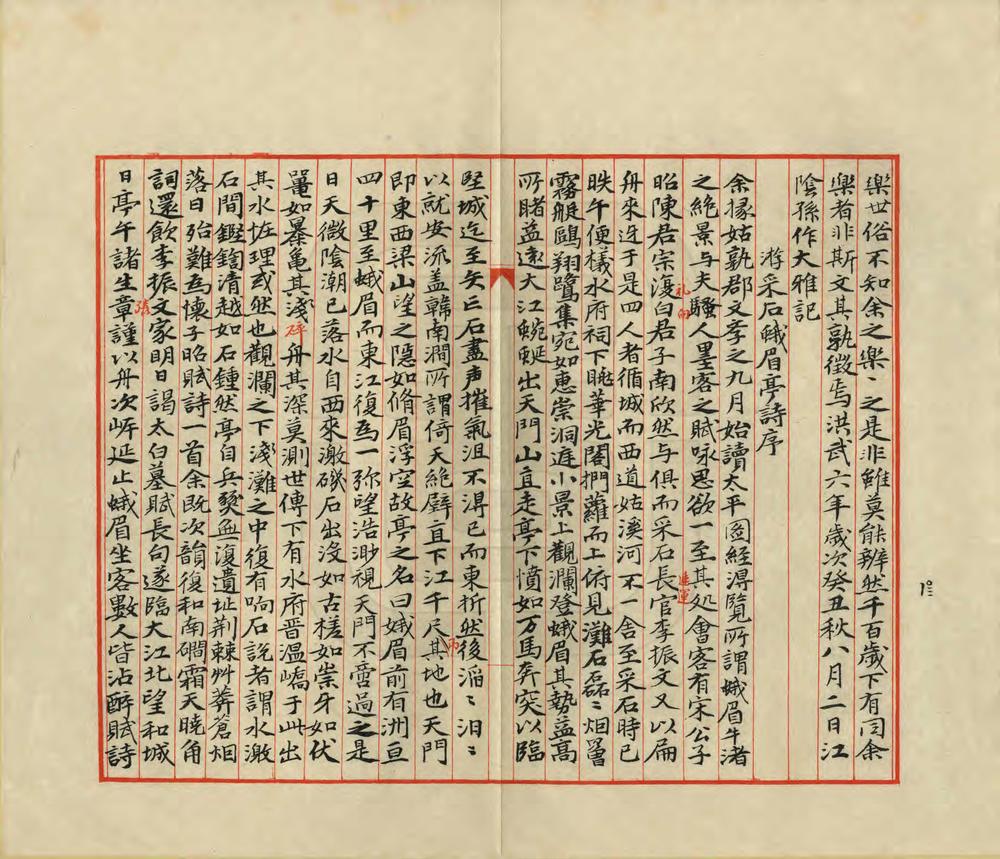 樂世俗不知余之樂〻之是非雖莫能辨然千百歲下有同余
樂者非斯文其孰徵焉洪武六年歲次癸丑秋八月二日江
陰孫作大雅記
游采石蛾眉亭詩序
余掾姑孰郡文李之九月始讀太平圖經淂覽所謂蛾眉牛渚
之絶景与夫騷人墨客之賦咏思欲一至其处會客有宋公子
昭陳君宗浸白君子南欣然与俱而采石長官李振文又以扁
舟來迓于是四人者循城而西道姑溪河不一舍至采石時已
昳午便檥水府祠下眺華光閣捫蘿而上俯見灘石磊〻烟罾
霧艇鷗翔鷺集宛如惠崇洞遊小景上觀瀾登蛾眉其㔟益高
所睹益遠大江蜿蜒出天門山直走亭下憤如万馬奔突以臨
堅城迄至矢亡石盡声摧氣沮不淂已而東折然後滔〻汨〻
以就安流盖韓南澗所謂倚天絶壁直下江千尺其地也天門
即東西梁山望之隱如脩眉浮空故亭之名曰娥眉前有洲亘
四十里至蛾眉而東江復為一弥望浩渺視天門不啻過之是
日天微陰潮已落水自西來激磯石出沒如古槎如崇牙如伏
鼉如暴龜其淺砰舟其深莫測世傳下有水府晋温嶠于此出
其水㘹理或然也觀瀾之下淺灘之中復有响石說者謂水激
石間鏗鍧清越如石鍾然亭自兵燹無復遺址荆棘艸莽蒼烟
落日殆難為懷子昭賦詩一首余既次韻復和南磵霜天曉角
詞還飲李振文家明日謁太白墓賦長句遂臨大江北望和城
日亭午諸生章謹以舟次㟁延止蛾眉坐客數人皆沾醉賦詩